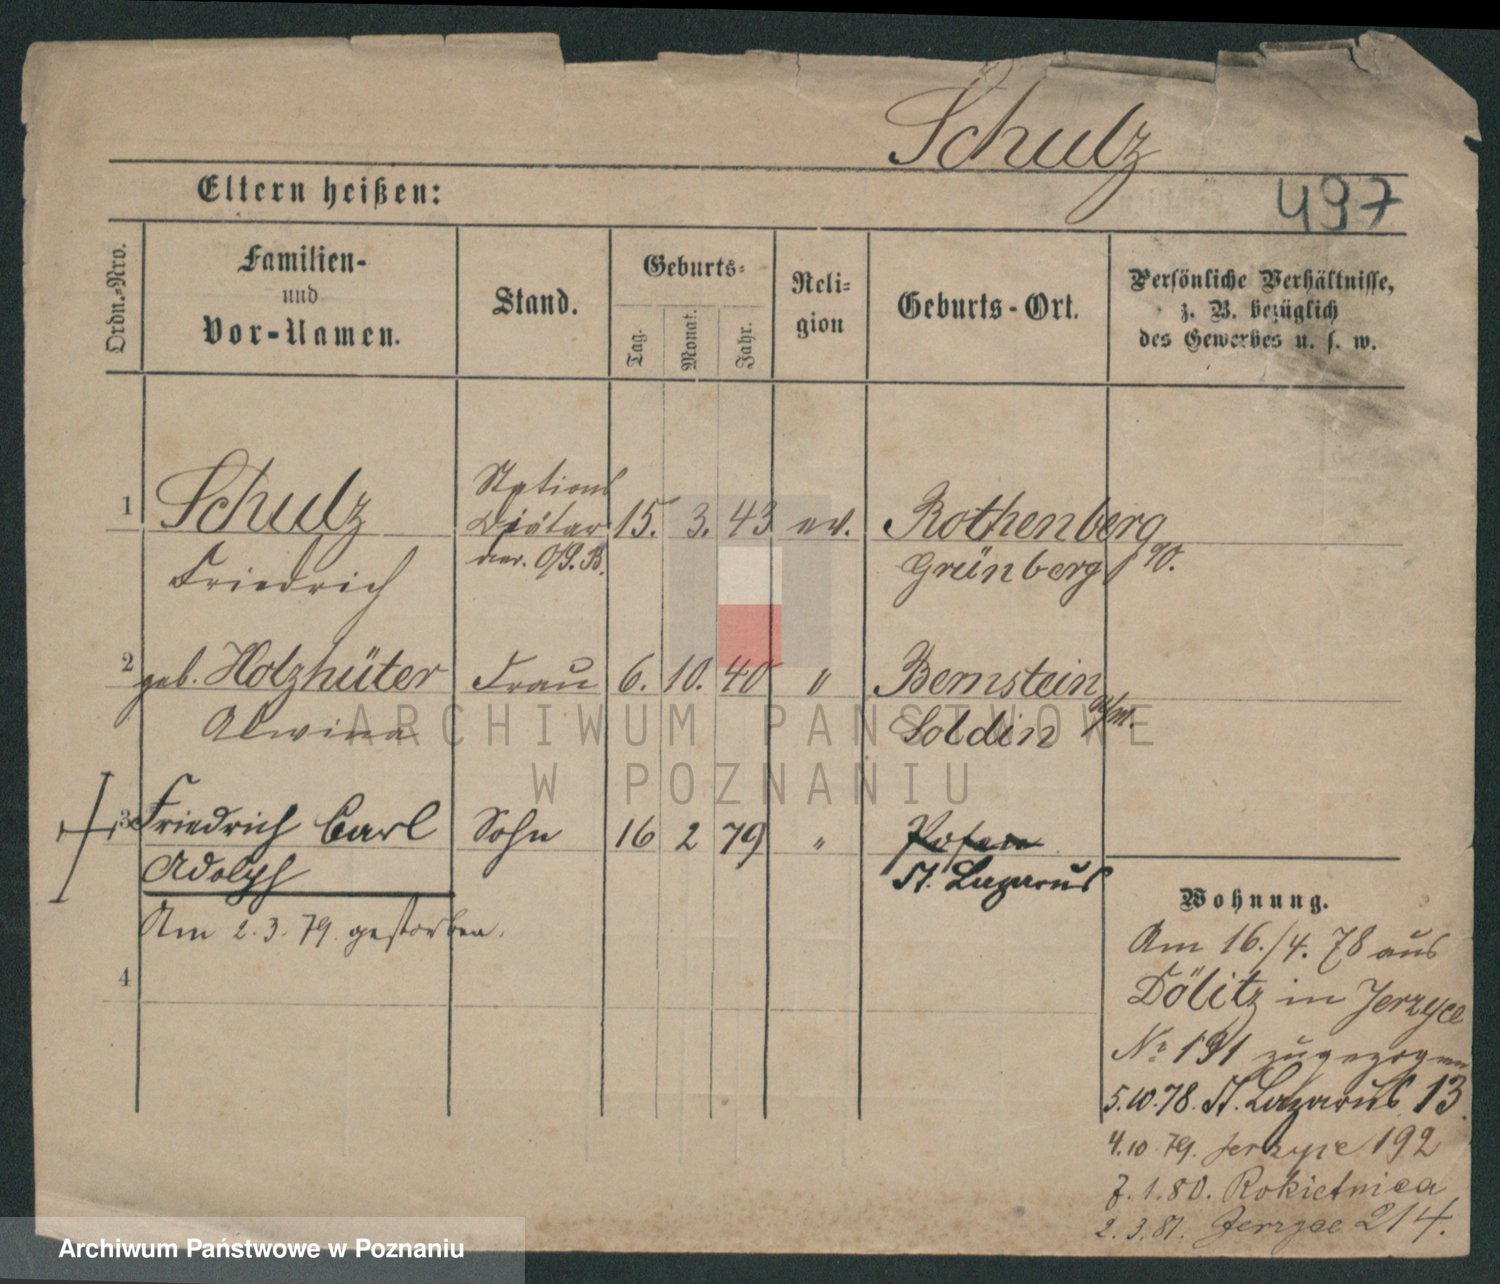 Schulz
Eltern heißen:
497
Ordn.-Nro.
Familien-
und
Vor-Namen.
Stand.
Geburts-
Tag.
Monat.
Jahr.
Reli-
gion
Geburts-Ort.
Persönliche Verhältnisse,
z. B. bezüglich
des Gewerbes u. s. w.
1 Schulz Stations 15. 3. 43 ev. Rothenberg
Friedrich Diätar der O/S. B. Grünberg
2 geb. Holzhüter Frau 6. 10. 40 " Bernstein
Alwina Soldin
3 Friedrich Carl Sohn 16 2 79 " Posen
Adolph St. Lazarus
Am 2. 3. 79. gestorben.
4
Wohnung.
Am 16./4. 78 aus
Dölitz in Jerzyce
No 191 zugezogen
5.10.78. St. Lazarus 13.
4.10.79. Jerzyce 192
7.1.80. Rokietnica
2.3.81. Jerzyce 214.
ARCHIWUM PAŃSTWOWE
W POZNANIU
Archiwum Państwowe w Poznaniu